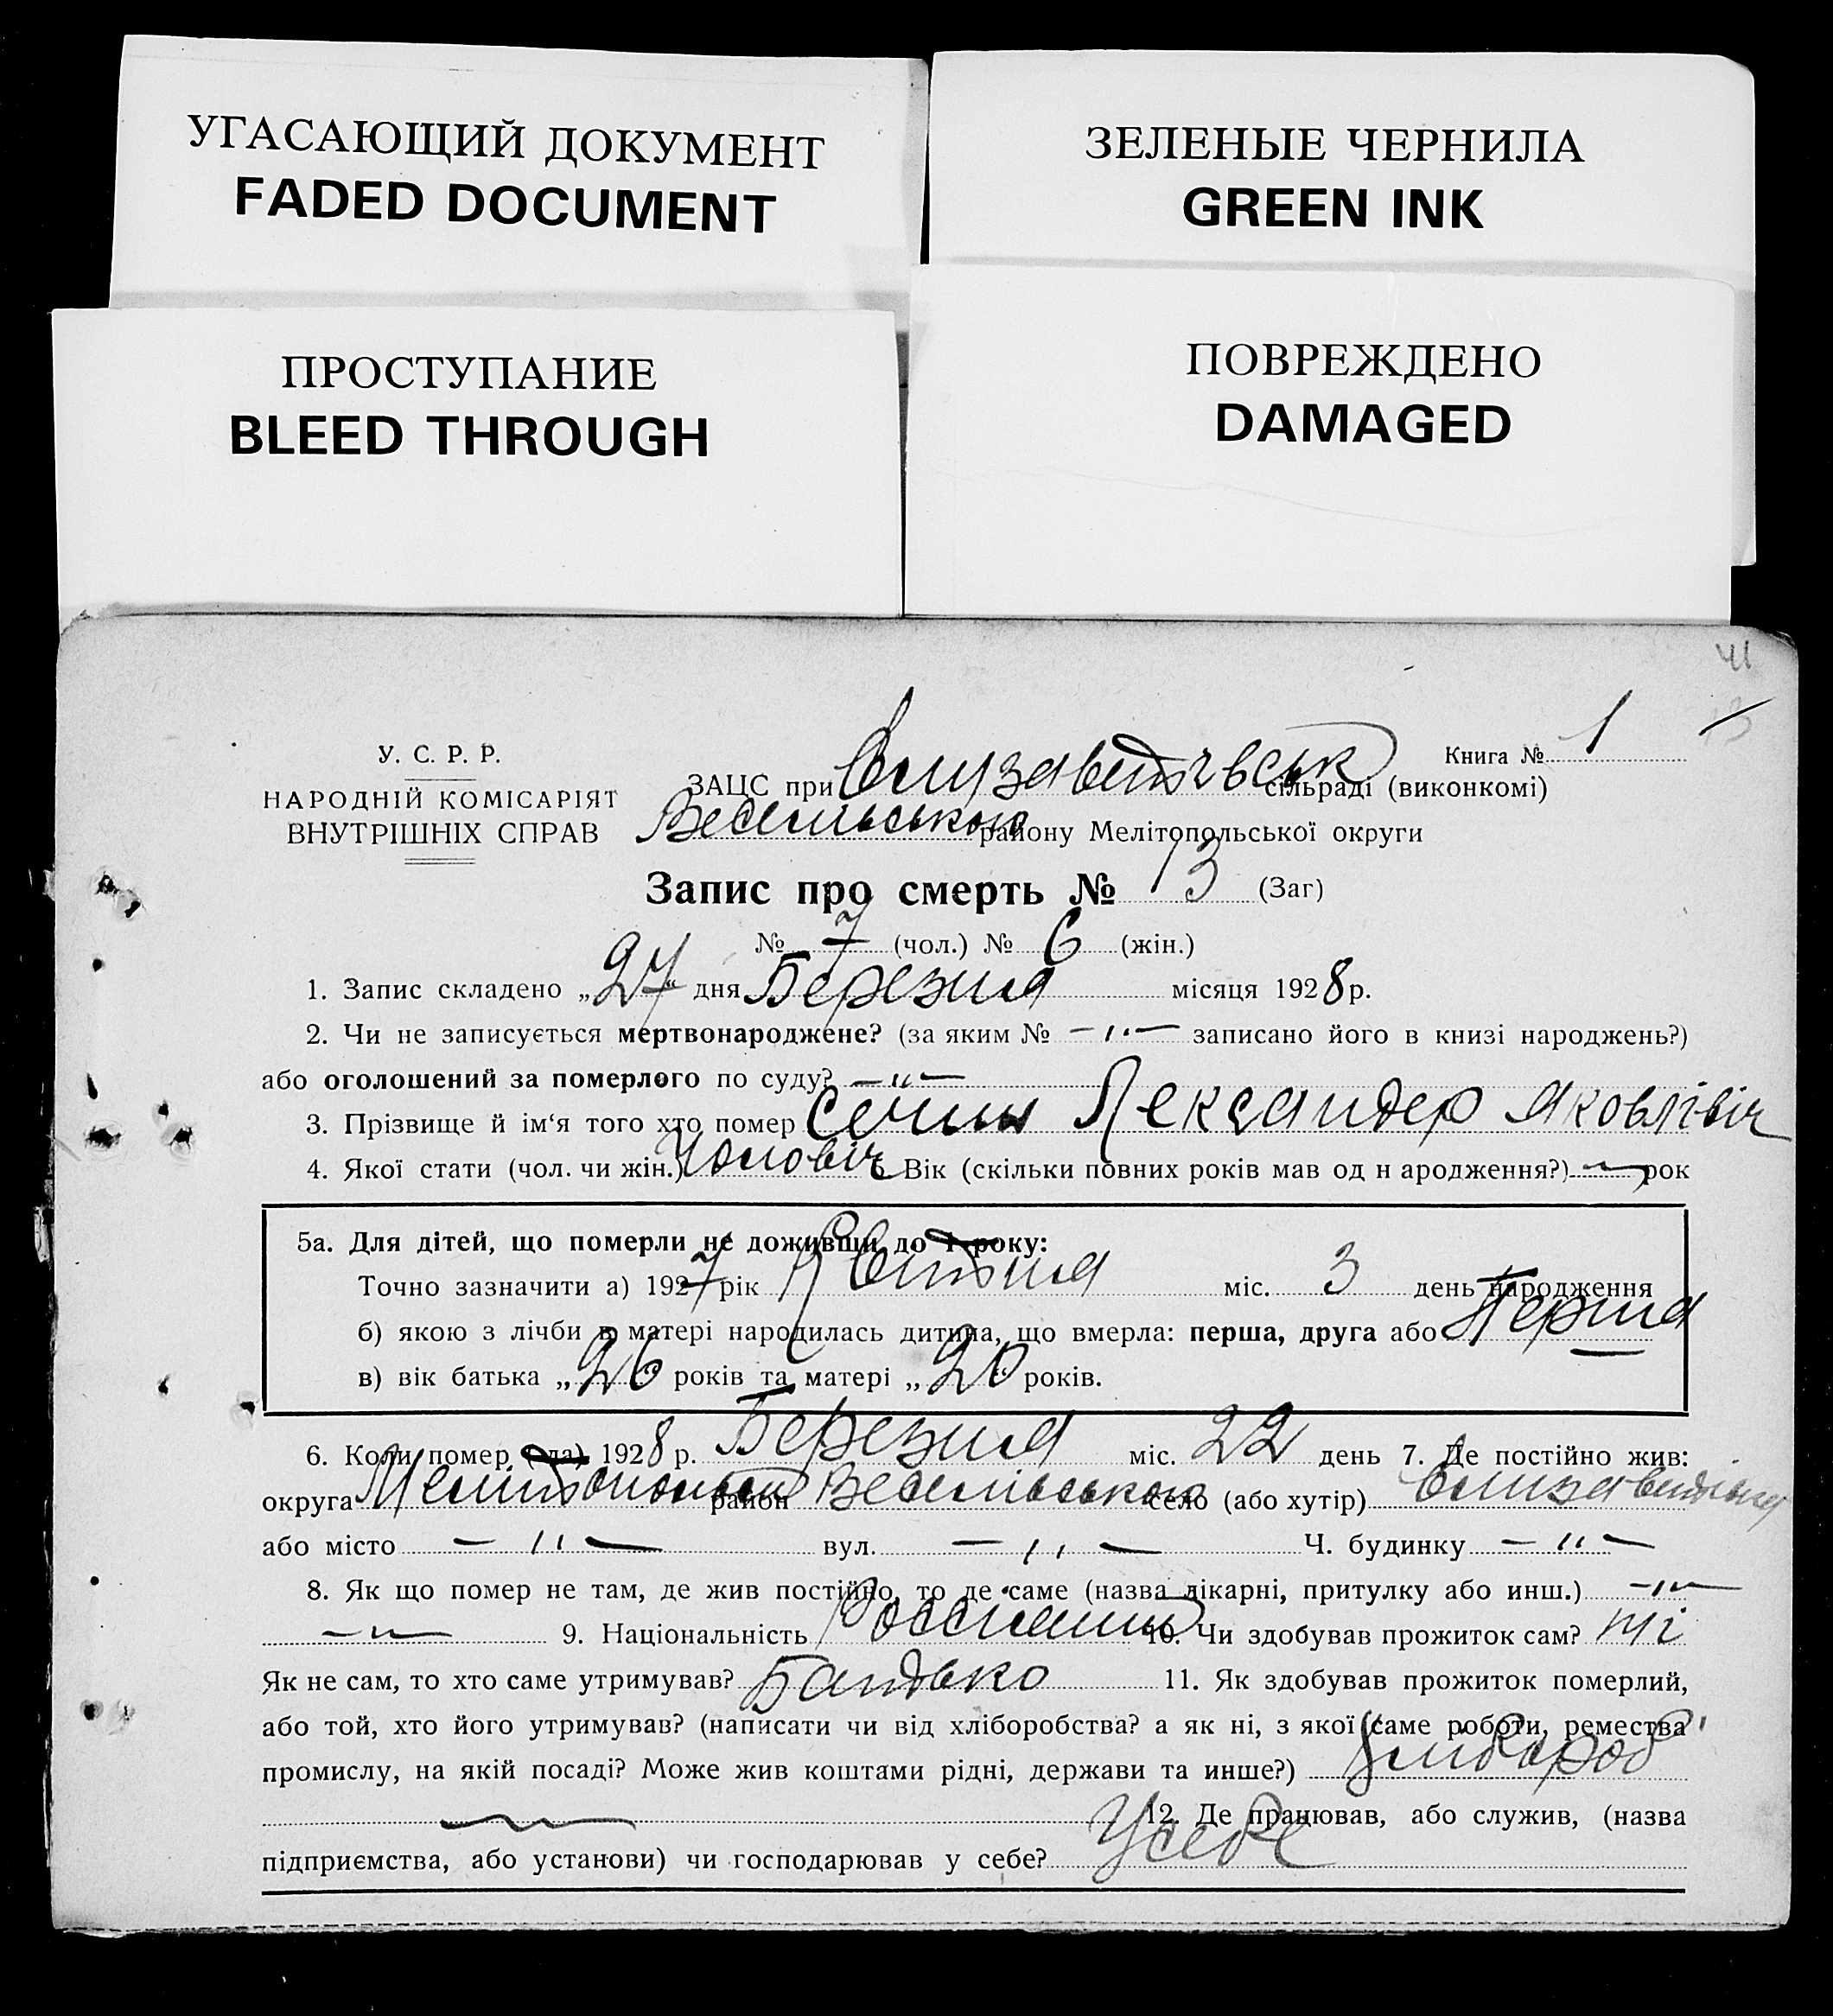 УГАСАЮЩИЙ ДОКУМЕНТ
FADED DOCUMENT
ЗЕЛЕНЫЕ ЧЕРНИЛА
GREEN INK
ПРОСТУПАНИЕ
BLEED THROUGH
ПОВРЕЖДЕНО
DAMAGED
41
У. С. Р. Р.
НАРОДНІЙ КОМІСАРІЯТ
ВНУТРІШНІХ СПРАВ
Книга № 1
ЗАЦС при Єлизаветівськ сільраді (виконкомі)
Веселівською району Мелітопольської округи
Запис про смерть № 13 (Заг)
№ 7 (чол.) № 6 (жін.)
1. Запис складено „27“ дня Березня місяця 1928 р.
2. Чи не записується мертвонароджене? (за яким № — " — записано його в книзі народжень?)
або оголошений за померлого по суду? — " —
3. Прізвище й ім‘я того хто помер Лександер Яковлівіч
4. Якої стати (чол. чи жін.) Чоловіч Вік (скільки повних років мав од н ародження?) — рок
5а. Для дітей, що померли не доживши до 1 року:
Точно зазначити а) 1927 рік Квітня міс. 3 день народження
б) якою з лічби в матері народилась дитина, що вмерла: перша, друга або Перша
в) вік батька „26“ років та матері „20“ років.
6. Коли помер (-ла) 1928 р. Березня міс. 22 день 7. Де постійно жив:
округа Мелітопольськ район Веселівською село (або хутір) Єлизаветівка
або місто — " — вул. — " — Ч. будинку — " —
8. Як що помер не там, де жив постійно, то де саме (назва лікарні, притулку або инш.) — " —
— " — 9. Національність Россіянин 10. Чи здобував прожиток сам? ні
Як не сам, то хто саме утримував? Батько 11. Як здобував прожиток померлий,
або той, хто його утримував? (написати чи від хліборобства? а як ні, з якої саме роботи, ремества
промислу, на якій посаді? Може жив коштами рідні, держави та инше?) Хлібороб
12. Де працював, або служив, (назва
підприємства, або установи) чи господарював у себе? Усебе